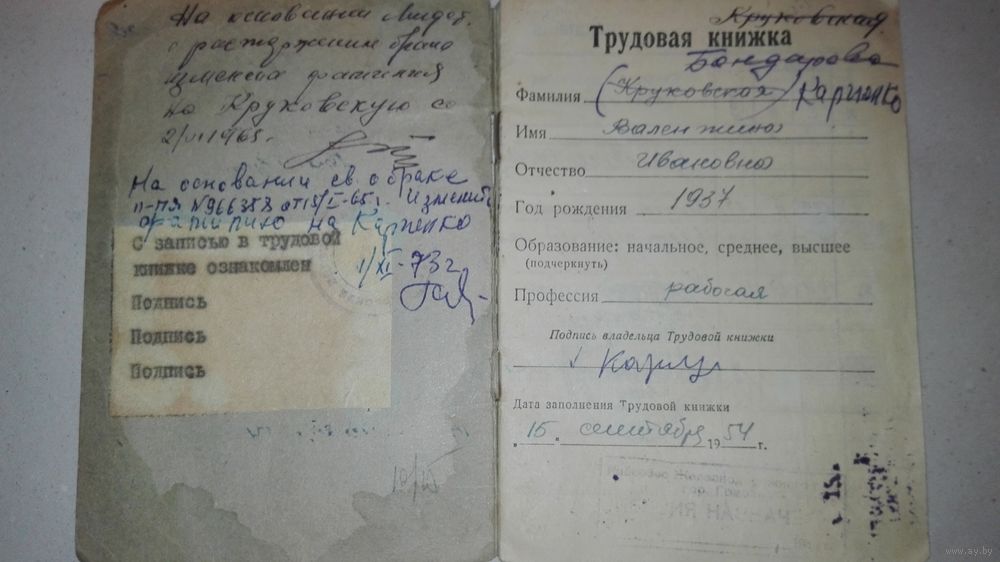 На основании свидет.
о расторжении брака
изменена фамилия
на Круковскую со
1965.
На основании св. о браке
№966358 от 15/I-65г. изменить
фамилию на Карпенко
1/XI-73г.
С записью в трудовой
книжке ознакомлен
Подпись
Подпись
Подпись
Круковская
Трудовая книжка
Бондарова
Фамилия (Круковская) Карпенко
Имя Валентина
Отчество Ивановна
Год рождения 1937
Образование: начальное, среднее, высшее
(подчеркнуть)
Профессия рабочая
Подпись владельца Трудовой книжки
Дата заполнения Трудовой книжки
„15“ сентября 1954 г.
www.ay.by